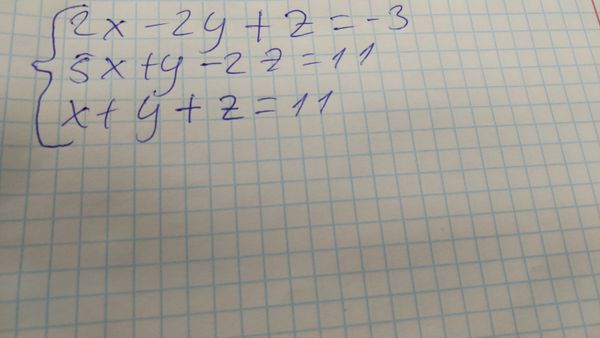 2x - 2y + z = -3
5x + y - 2z = 11
x + y + z = 11